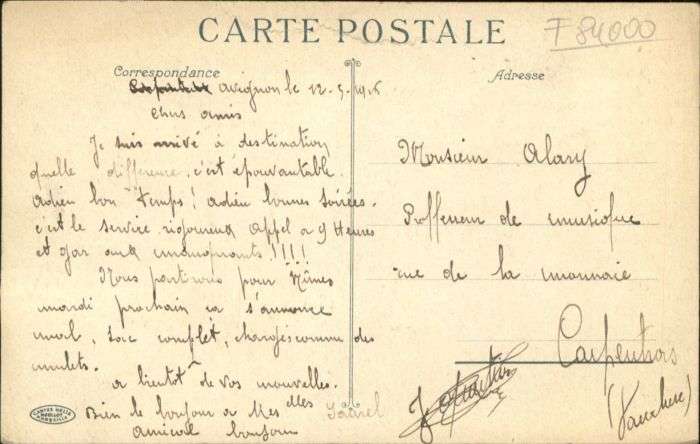 CARTE POSTALE
F 84000
Correspondance
Adresse
Avignon le 12-5-1916
Chers amis
Je suis arrivé à destination
quelle différence, c'est épouvantable.
Adieu bon temps! Adieu bonnes soirées.
c'est le service rigoureux Appel a 9 Heures
et gar aux manquants!!!!
Nous partirons pour Nîmes
mardi prochain ca s'annonce
mal, sac complèt, chargés comme des
mulets.
a bientôt de vos nouvelles.
Bien le bonjour a Mes Mlles
amical bonjour
Monsieur Alary
Proffesseur de musique
rue de la monnaie
Carpentras
(Vaucluse)